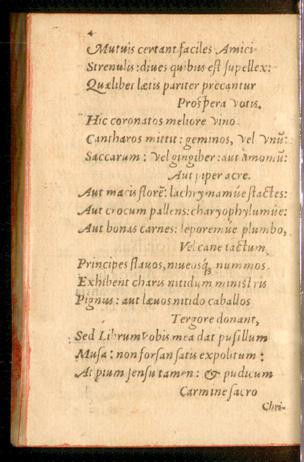 4
Mutuis certant faciles Amici
Strenulis: diues quibus est supellex:
Quælibet lætis pariter precantur
Prospera votis.
Hic coronatos meliore vino
Cantharos mittit: geminos, vel vnū:
Saccarum: vel gingiber: aut Amomū:
Aut piper acre.
Aut macis florē: lachrymamúe stactes:
Aut crocum pallens: charyophylumúe:
Aut bonas carnes: leporemúe plumbo,
Vel cane tactum.
Principes flauos, niueosq; nummos
Exhibent charis nitidum ministris
Pignus: aut læuos nitido caballos
Tergore donant,
Sed Librum vobis mea dat pusillum
Musa: non forsan satis expolitum:
At pium sensu tamen: & pudicum
Carmine sacro
Chri-